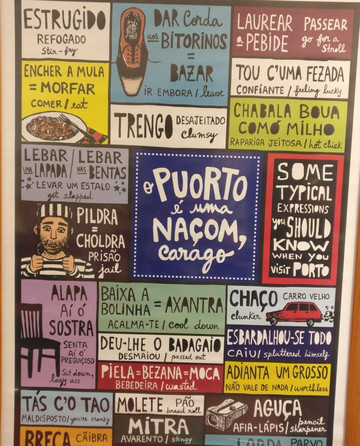 ESTRUGIDO
REFOGADO
Stir-fry
DAR Corda
aos BITORINOS
=
BAZAR
IR EMBORA / leave
LAUREAR A PEBIDE
PASSEAR
go for a stroll
ENCHER A MULA
= MORFAR
COMER / eat
TOU C'UMA FEZADA
CONFIANTE / feeling lucky
TRENGO
DESAJEITADO
clumsy
CHABALA BOUA
COMÓ MILHO
RAPARIGA JEITOSA / hot chick
LEBAR UMA LAPADA / LEBAR NAS BENTAS
LEVAR UM ESTALO
get slapped
O PUORTO
é uma
NAÇOM,
carágo
SOME
TYPICAL
EXPRESSIONS
you SHOULD
KNOW
WHEN YOU
VISIT PORTO
PILDRA
=
CHOLDRA
PRISÃO
jail
ALAPA
AÍ Ó
SOSTRA
SENTA
AÍ Ó
PREGUIÇOSO
Sit down,
lazy ass
BAIXA A
BOLINHA = AXANTRA
ACALMA-TE / cool down
CHAÇO
CARRO VELHO
clunker
DEU-LHE O BADAGAIO
DESMAIOU / passed out
ESBARDALHOU-SE TODO
CAIU / splattered himself
PIELA=BEZANA=MOCA
BEBEDEIRA / wasted
ADIANTA UM GROSSO
NÃO VALE DE NADA / worthless
TÁS C'O TAO
MALDISPOSTO / you're cranky
MOLETE
PÃO
bread roll
AGUÇA
AFIA-LÁPIS / pencil sharpener
MITRA
AVARENTO / stingy
BRECA
CÃIBRA